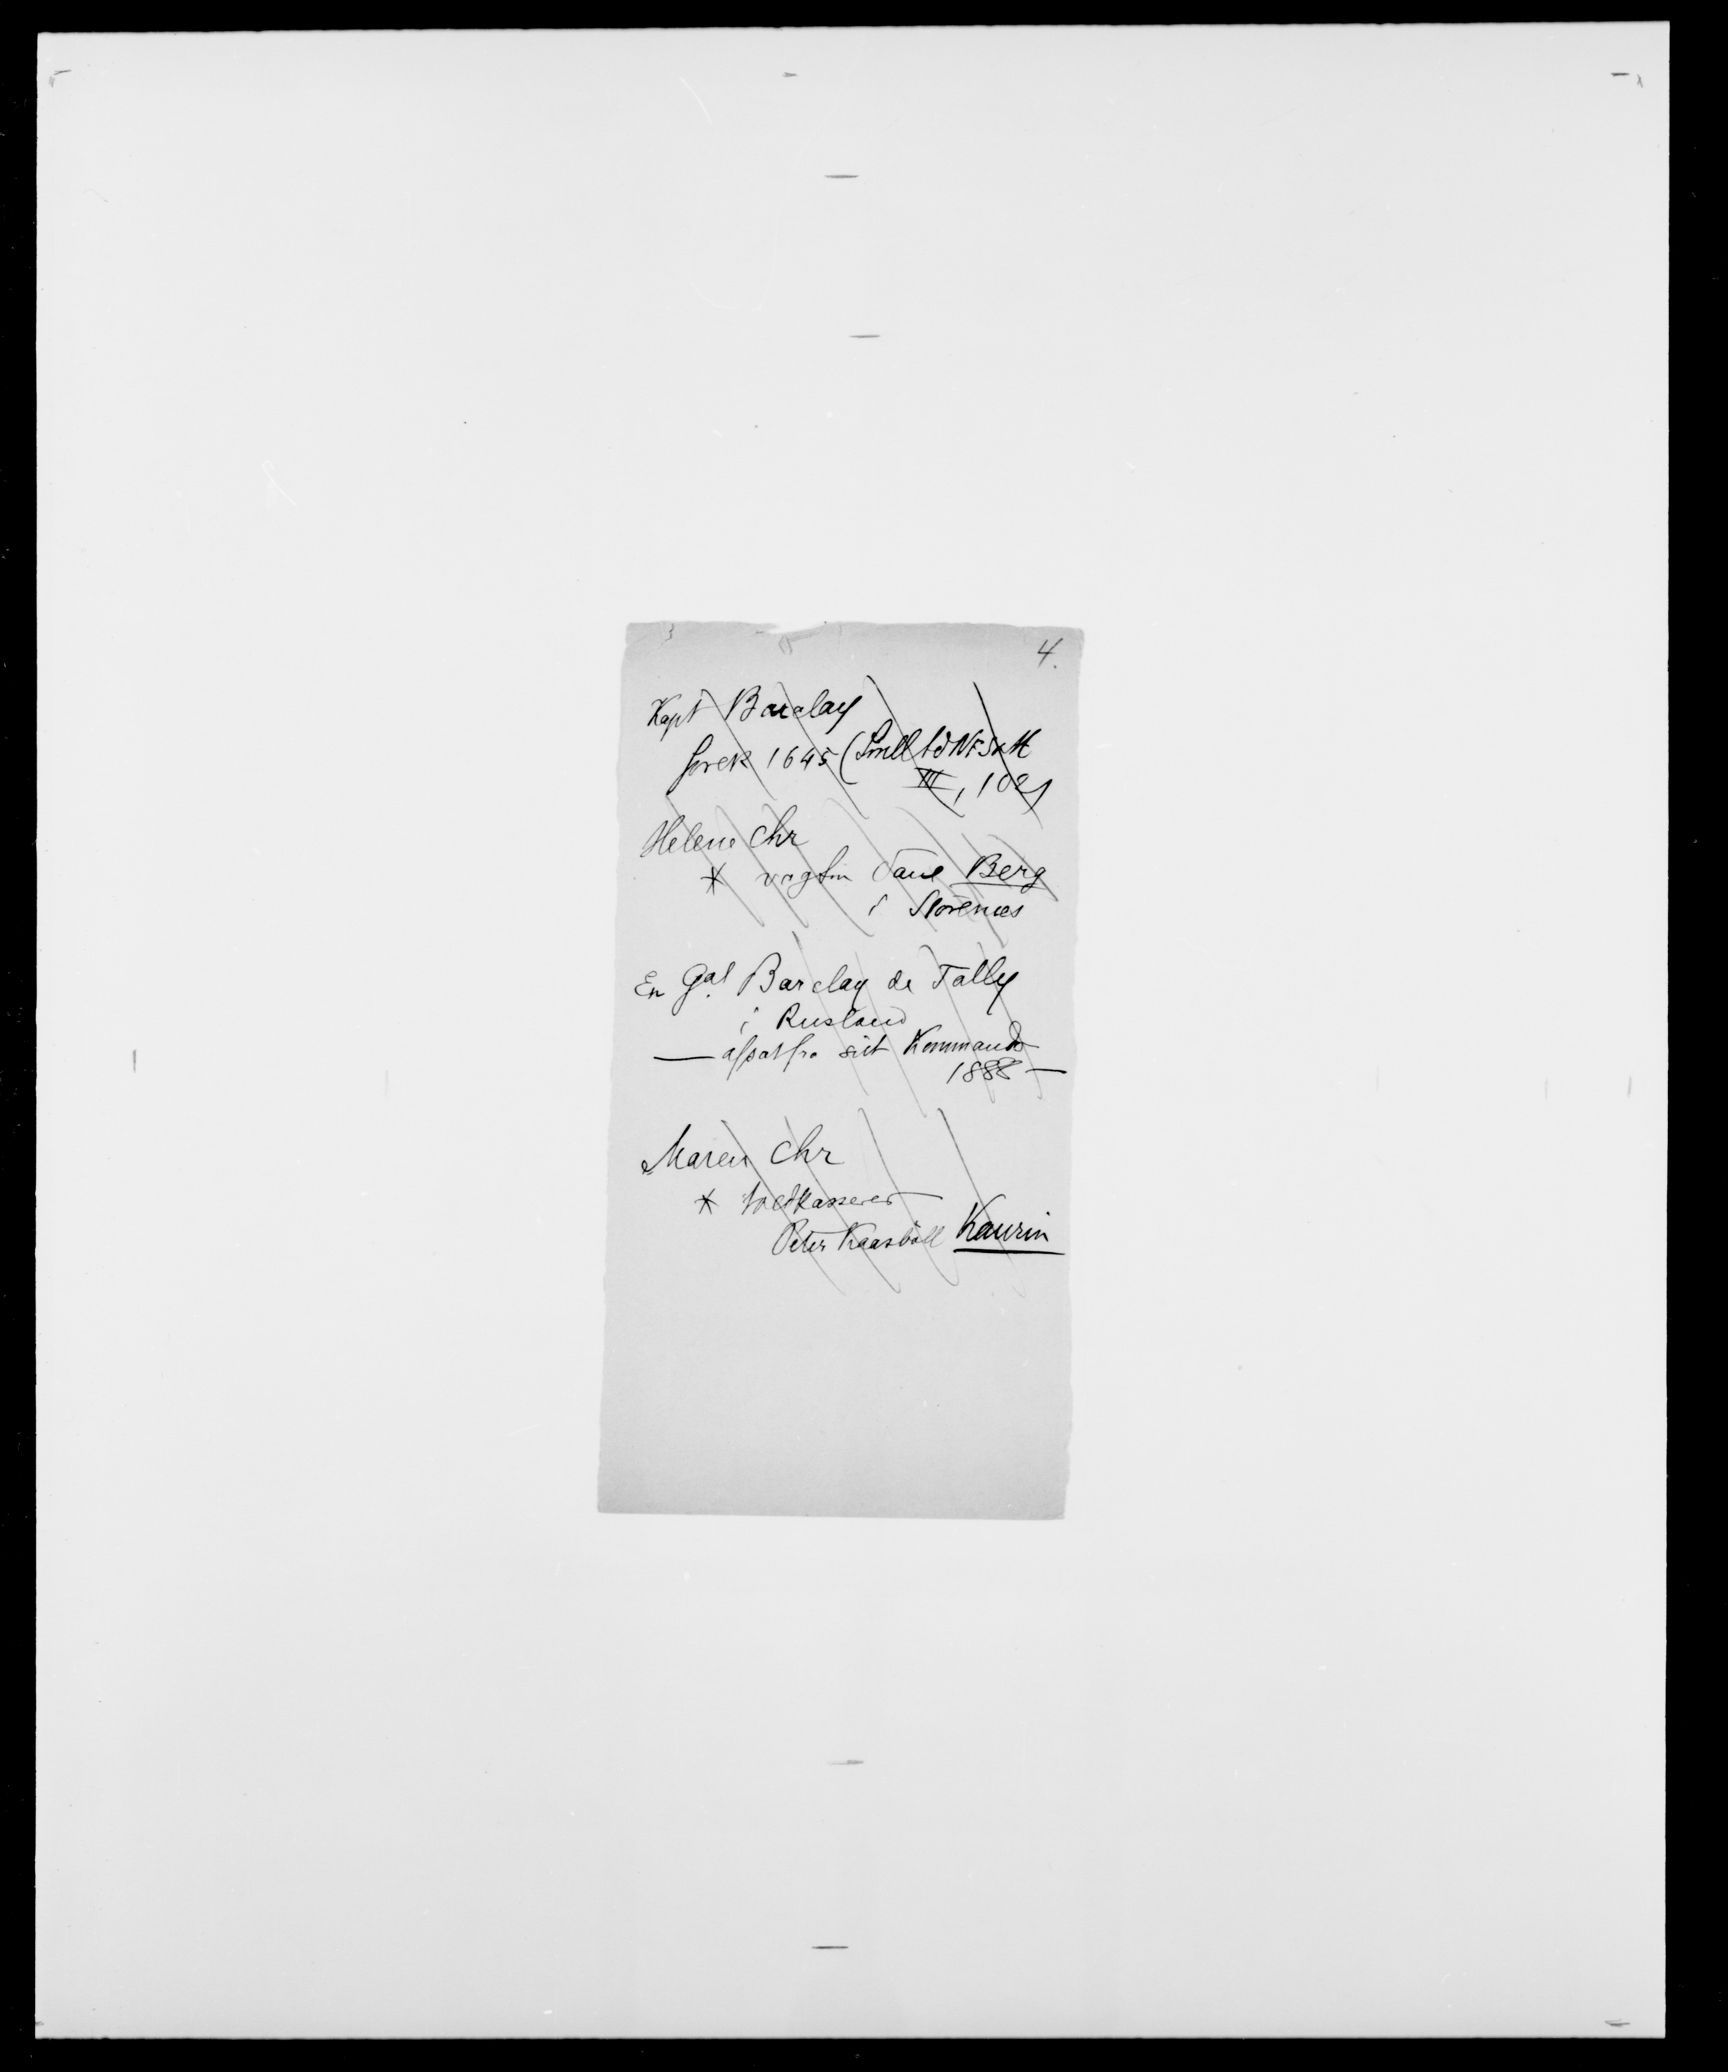 4.
Kapt Barclay
forek 1645 (Smll td NF Sr M
III, 102)
Helene Chr
* vagtm Dane Berg
i Storenæs
En Gal Barclay de Tolly
i Rusland
— afsat fra sit Kommando
1888 —
Maren Chr
* toldkasserer
Peter Kaasböll Kaurin